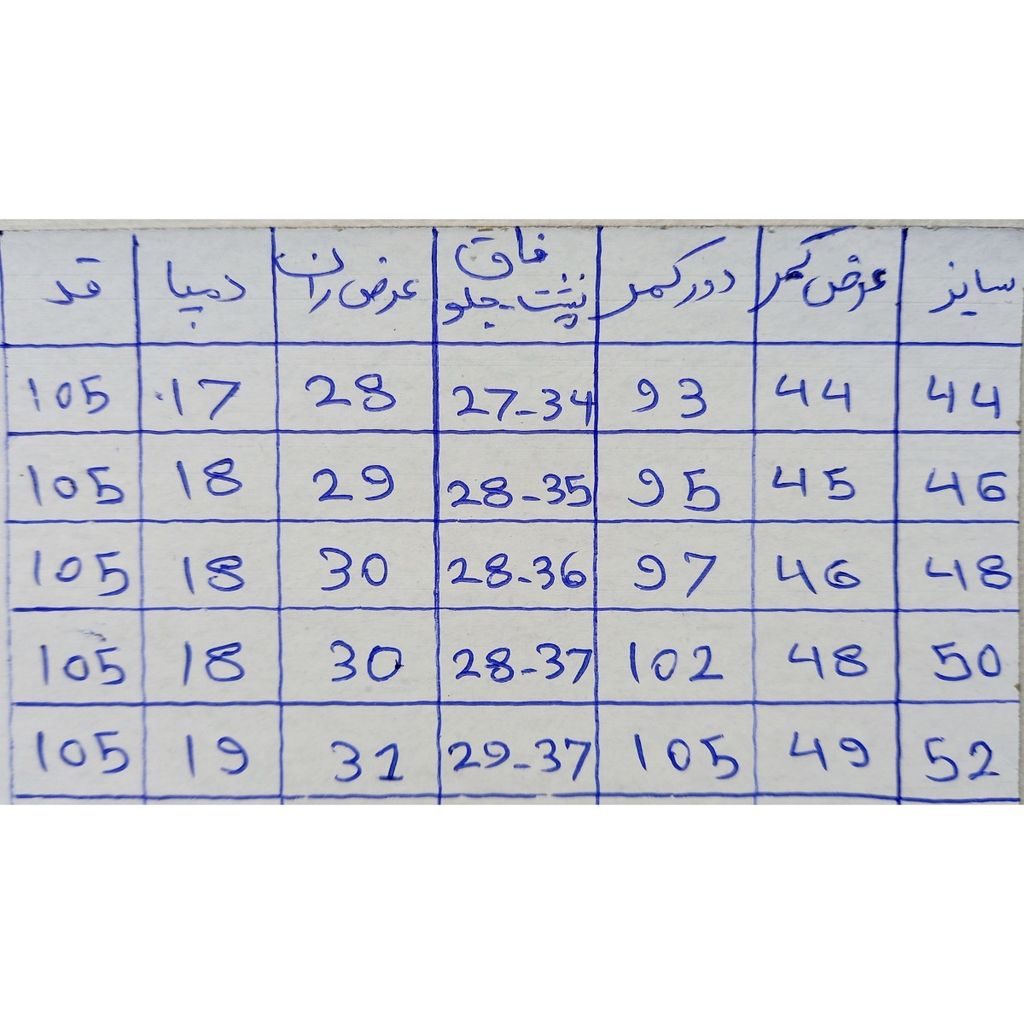 سایز عرض کمر دور کمر فاق پشت-جلو عرض ران دمپا قد
44 44 93 27-34 28 17 105
46 45 95 28-35 29 18 105
48 46 97 28-36 30 18 105
50 48 102 28-37 30 18 105
52 49 105 29-37 31 19 105